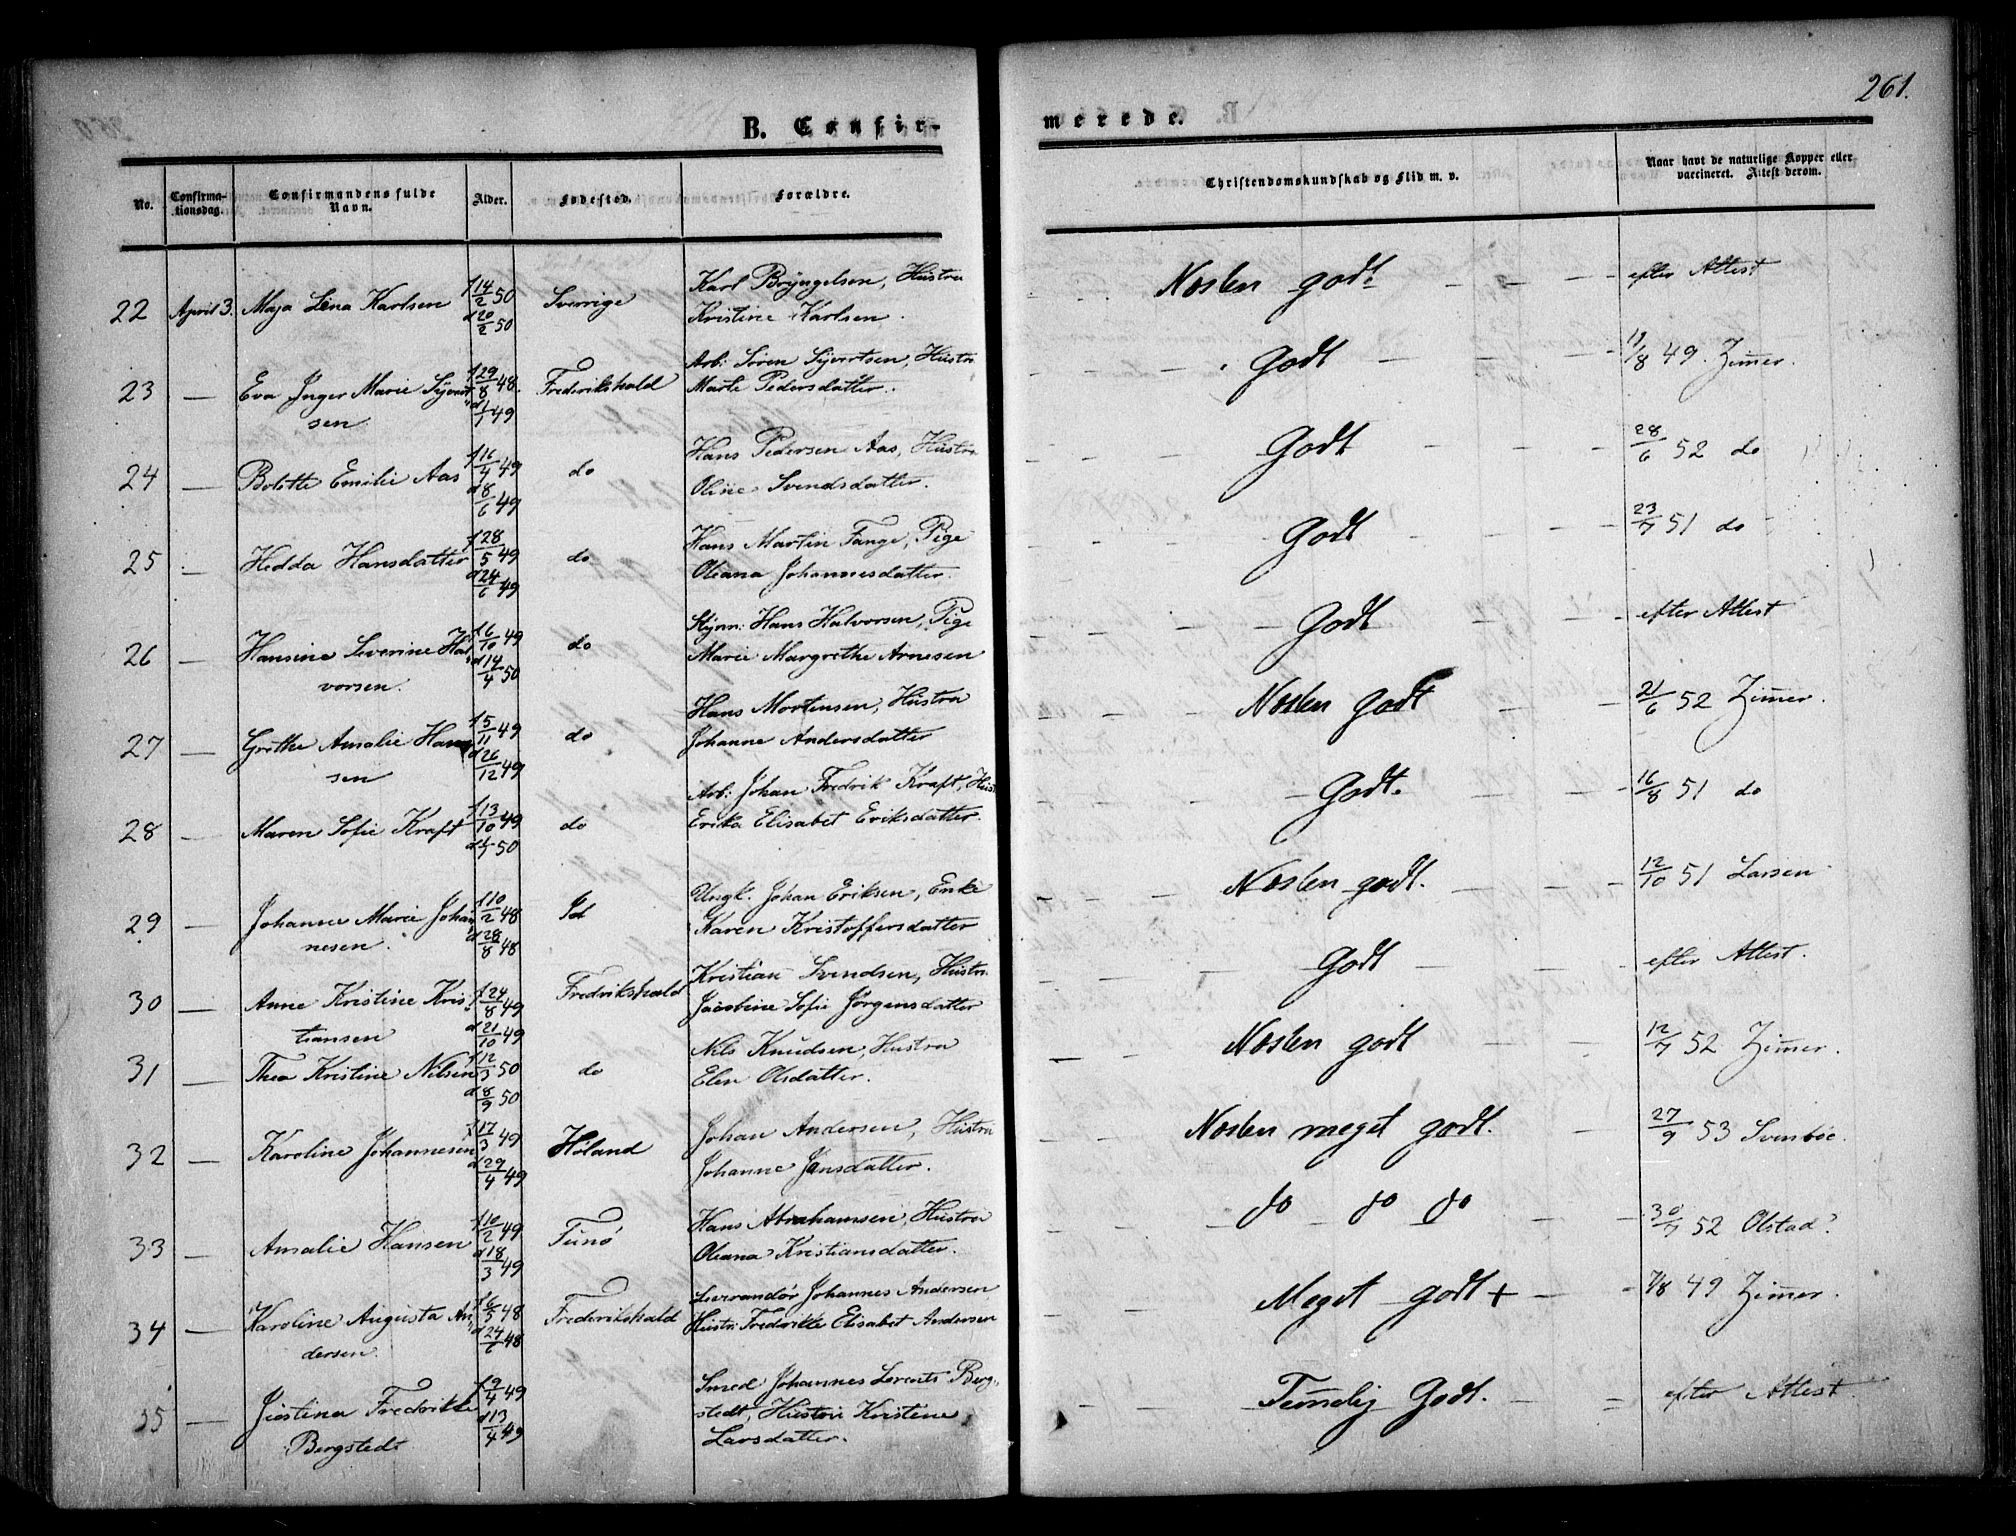 261.
B. Confirmerede.
No. Confirmationsdag. Confirmandens fulde Navn. Alder. Fødested. Forældre. Christendomskundskab og Flid m. v. Naar havt de naturlige Kopper eller vaccineret. Attest derom.
22 April 3. Maja Lena Karlsen f 14/2 50 d 20/2 50 Sverrige Karl Bryngelsen, Hustru Kristine Karlsen. Næsten godt. efter Attest
23 — Eva Inger Marie Syvertsen f 29/8 48. d 1/1 49 Frederikshald Arb: Søren Syvertsen, Hustru Marte Pedersdatter. Godt 11/8 49. Zimer.
24 — Bolette Emilie Aas f 16/4 49 d 8/6 49 do Hans Pedersen Aas, Hustru Oline Svendsdatter. Godt 28/6 52 do
25 — Hedda Hansdatter f 28/5 49 d 24/6 49 do Hans Martin Tange, Pige Oleana Johannesdatter. Godt 23/7 51 do
26 — Hansine Severine Halvorsen. f 16/10 49 d 14/4 50 do Styrm: Hans Halvorsen, Pige Marie Margrethe Arnesen Godt efter Attest
27 — Grethe Amalie Hansen f 5/11 49 d 26/12 49 do Hans Mortensen, Hustru Johanne Andersdatter Næsten godt 21/6 52 Zimer.
28 — Maren Sofie Kraft f 13/10 49 d 1/1 50 do Arb: Johan Fredrik Kraft, Hust Erika Elisabet Eriksdatter. Godt. 16/8 51 do
29 — Johanne Marie Johannesen. f 10/2 48 d 28/8 48 Id Ungk. Johan Eriksen, Enke Karen Kristoffersdatter Næsten godt. 12/10 51 Larsen
30 — Anne Kristine Kristiansen f 24/8 49 d 21/10 49 Fredrikshald Kristian Svendsen, Hustru Jacobine Sofie Jørgensdatter Godt efter Attest.
31 — Thea Kristine Nilsen f 12/3 50 d 8/9 50 do Nils Knudsen, Hustru Elen Olsdatter. Næsten godt 12/7 52 Zimer.
32 — Karoline Johannesen f 17/3 49 d 29/4 49 Høland Johan Andersen, Hustru Johanne Jansdatter. Næsten meget godt. 27/9 53 Svenbøe.
33 — Amalie Hansen f 10/2 49 d 18/3 49 Tunø Hans Abrahamsen, Hustru Oleana Kristiansdatter. do do do 30/7 52 Olstad?
34 — Karoline Augusta Andersen. f 6/5 48 d 24/6 48 Frederikshald Leverandør Johannes Andersen Hustr: Fredrikke Elisabet Andersen Meget godt + 7/8 49 Zimer.
35 — Justina Fredrikke Bergstedt f 9/4 49 d 13/4 49 Smed Johannes Lorents Bergstedt, Hustru Kristine Larsdatter. Temelig Godt. efter Attest.